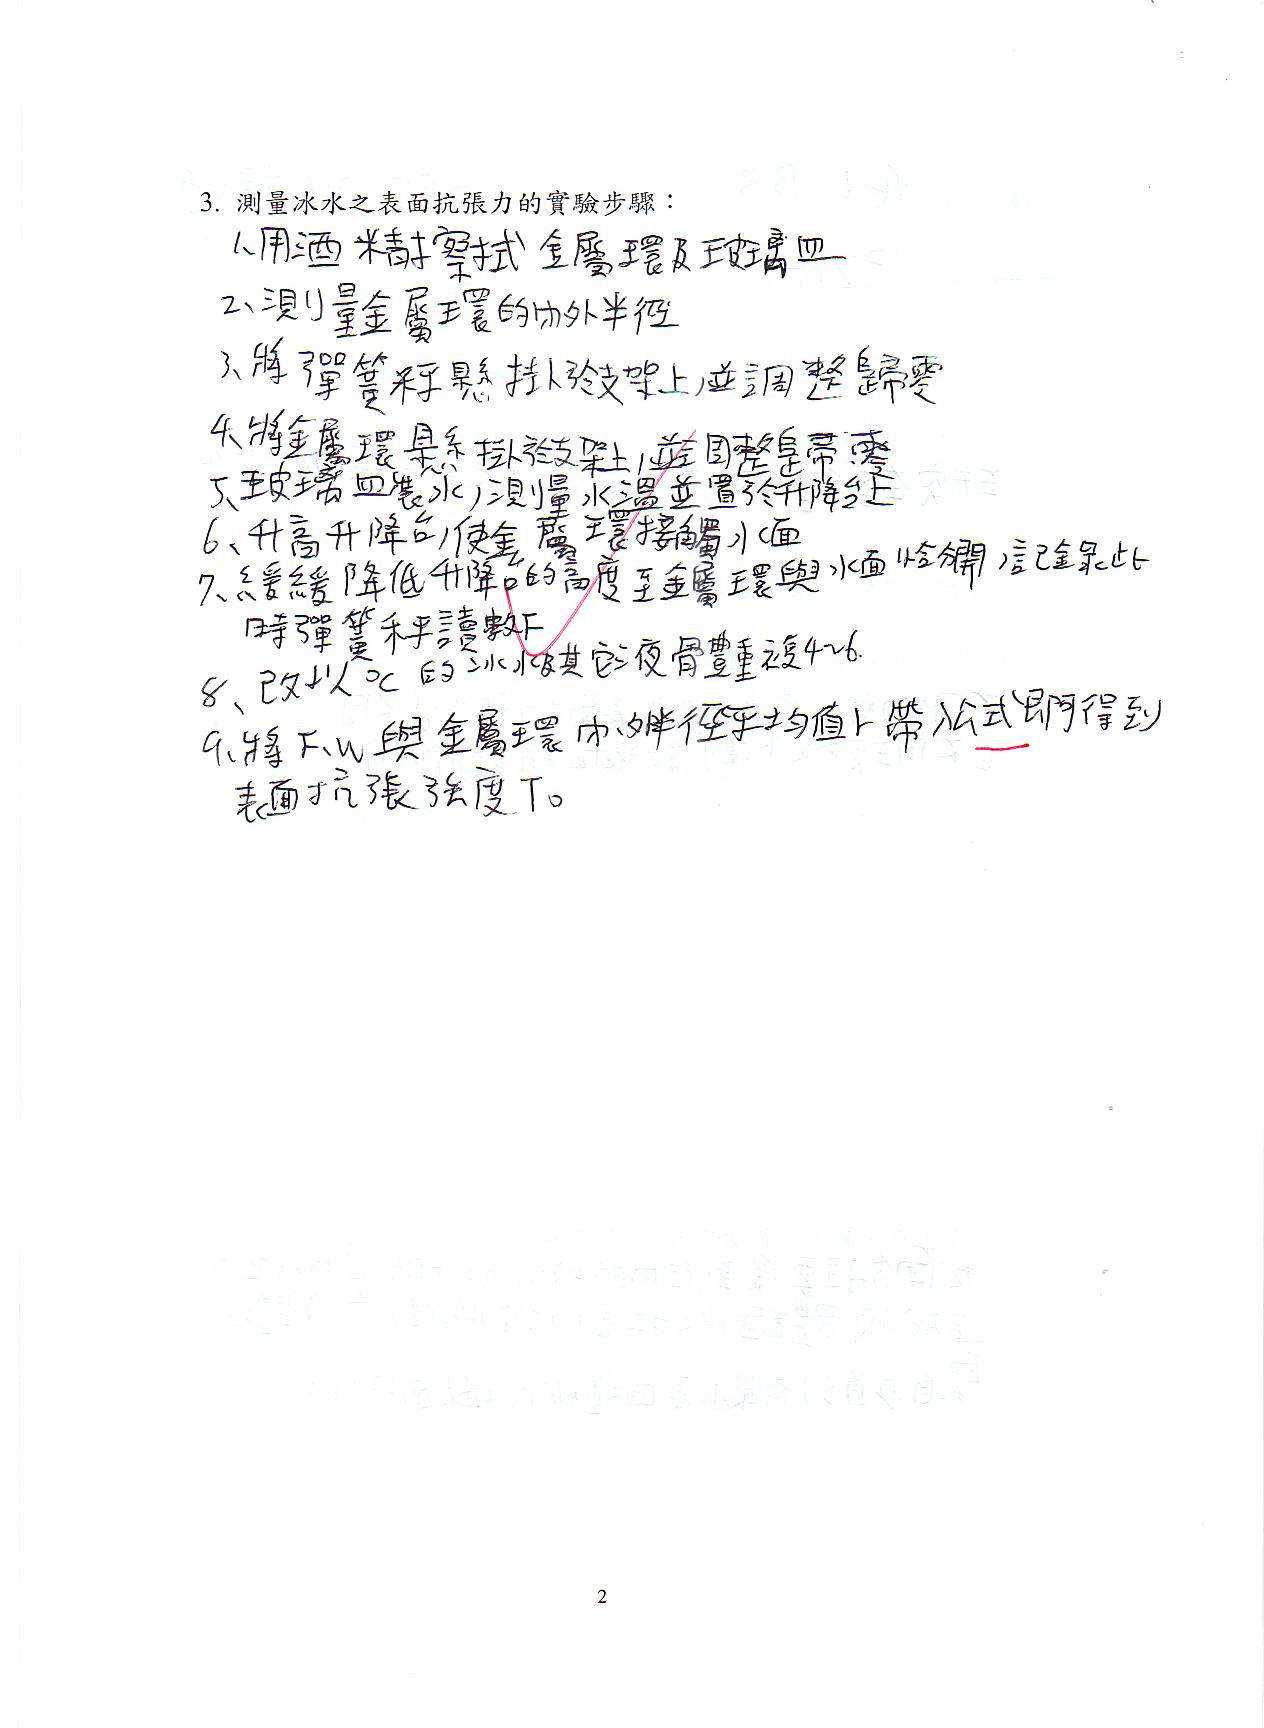 3. 測量冰水之表面抗張力的實驗步驟：
1、用酒精擦拭金屬環及玻璃皿
2、測量金屬環的內外半徑
3、將彈簧秤懸掛於支架上,並調整歸零
4、將金屬環懸掛於支架上,並調整歸零
5、玻璃皿裝水,測量水溫並置於升降台上
6、升高升降台,使金屬環接觸水面
7、緩緩降低升降台的高度至金屬環與水面恰分開,記錄此
時彈簧秤讀數F
8、改以0℃的冰水及其它液體重複4~6.
9、將F、W與金屬環內、外半徑平均值r帶入公式即可得到
表面抗張強度T。
2